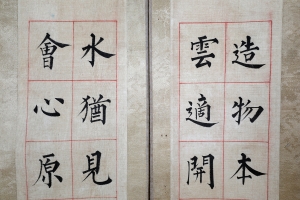 造物本
雲適開
水猶見
會心原